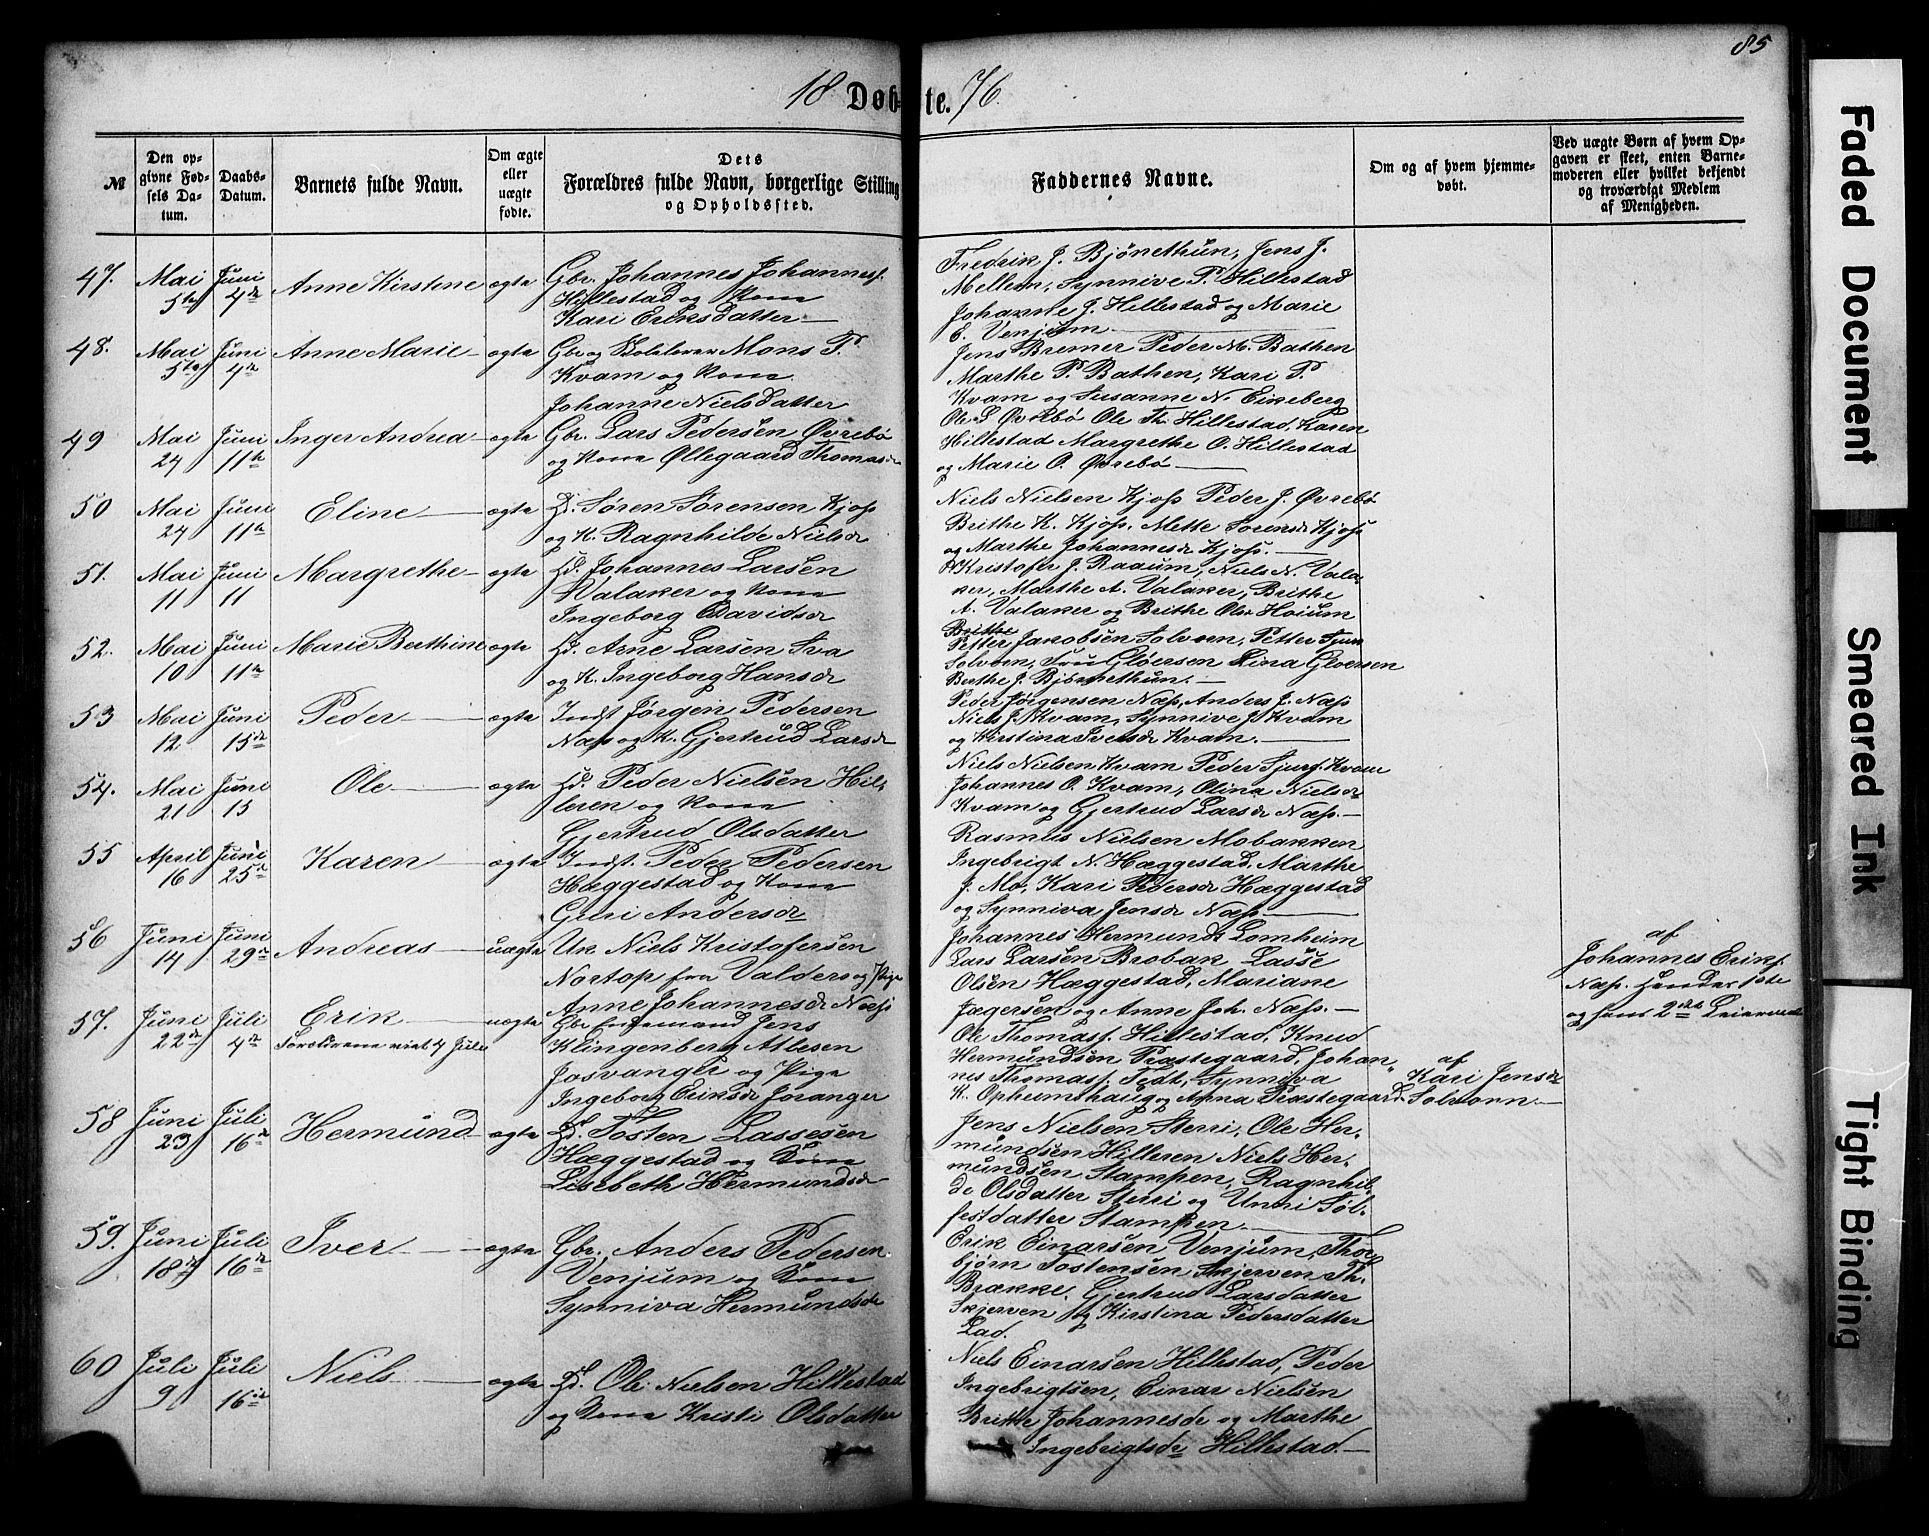 85
18 Døbte. 76.
№
Den opgivne Fødsels Datum.
Daabs-Datum.
Barnets fulde Navn.
Om ægte eller uægte fødte.
Dets Forældres fulde Navn, borgerlige Stilling og Opholdssted.
Faddernes Navne.
Om og af hvem hjemmedøbt.
Ved uægte Børn af hvem Opgaven er skeet, enten Barnemoderen eller hvilket bekjendt og troværdigt Medlem af Menigheden.
47. Mai 5te Juni 4de Anne Kirstine ægte Gbr. Johannes Johannesf.
Hillestad og Kone
Kari Eriksdatter
Fredrik J. Bjønethun, Jens J.
Mellem, Synnive P. Hillestad
Johanne J. Hillestad og Marie
E. Venjum
48. Mai 5te Juni 4de Anne Marie ægte Gbr og Skolelærer Mons P.
Kvam og Kone
Johanne Nielsdatter
Jens Bremer Peder M. Bathen
Marthe P. Bathen, Kari P.
Kvam og Susanne N. Eikeberg
49 Mai 24 Juni 11te Inger Andrea ægte Gbr. Lars Pedersen Øvrebø
og Kone Øllegaard Thomasdr
Ole L Øvrebø Ole Th. Hillestad, Karen
Hillestad Margrethe O. Hillestad
og Marie O. Øvrebø
50 Mai 24 Juni 11te Eline ægte Hd. Søren Sørensen Kjos
og K. Ragnhilde Nielsdr
Niels Nielsen Kjos Peder J. Øvrebø
Brithe K. Kjos, Mette Sørensdr Kjos
og Marthe Johannesdr Kjos.
51. Mai 11 Juni 11 Margrethe ægte Hd. Johannes Larsen
Valaker og Kone
Ingeborg Davidsdr
Kristofer J. Raaum, Niels N. Vala-
ker, Marthe A. Valaker, Brithe
A. Valaker og Brithe Olsdr Høium
52. Mai 10 Juni 11te Marie Berthine ægte Hd. Arne Larsen Sva
og K. Ingeborg Hansdr
Brithe
Petter Jakobsen Solvorn, Petter
Solvorn, Fru Gløersen Lina Gløersen
Berthe J. Bjørnethun.
53 Mai 12 Juni 15de Peder ægte Indst Jørgen Pedersen
Næs og K. Gjertrud Larsdr
Peder Jørgensen Næs, Anders J. Næs
Niels J. Kvam, Synnive J. Kvam
og Kirstina Kvam.
54. Mai 21 Juni 15 Ole ægte Hd. Peder Nielsen Hil-
leren og Kone
Gjertrud Olsdatter
Niels Nielsen Kvam Peder Sjurs. Kvam
Johannes O. Kvam, Olina Nielsdr
Kvam og Gjertrud Larsdr Næs.
55 April 16 Juni 25de Karen ægte Indst. Peder Pedersen
Hæggestad og Kone
Guri Andersdr
Rasmus Nielsen Mobakken
Ingebrigt N. Hæggestad, Marthe
J. Mo, Kari Pedersdr Hæggestad
og Synniva Jensdr Næs
56 Juni 14 Juni 29de Andreas uægte Uk Niels Kristofersen
Nortop fra Valders og Pige
Anne Johannesdr Næs
Johannes Hermunds Lomheim
Lars Larsen Brobak Lasse
Olsen Hæggestad, Mariane
Jægersen og Anne Joh. Næs.
af
Johannes Eriks.
Næs. Hendes 1ste
og hans 2det Leiermaal
57. Juni 22de Juli 4de Erik
Forældrene viet 4 Juli
uægte Gbr Enkemand Jens
Klingenberg Atlesen
Josvanger og Pige
Ingeborg Eriksdr Joranger
Ole Thomass. Hillestad, Knud
Hermundsen Præstegaard, Johan-
nes Thomass. Tedt, Synniva
K. Opheimshaug og Anna Præstegaard
af
Kari Jensdr
Solvorn
58 Juni 23 Juli 16de Hermund ægte Hd. Tosten Lassesen
Hæggestad og Kone
Lisebeth Hermundsdr
Jens Nielsen Sterri, Ole Her-
mundsen Hilleren Niels Her-
mundsen Stampen, Ragnhil-
de Olsdatter Sterri og Unni Søl-
festdatter Stampen
59. Juni 18de Juli 16de Iver ægte Gbr. Anders Pedersen
Venjum og Kone
Synniva Hermundsdr
Erik Einarsen Venjum, Thor-
bjørn Tostensen Skjerven Th.
Brække, Gjertrud Larsdatter
Skjerven og Kirstina Pedersdatter
Lad.
60 Juli 9 Juli 16de Niels ægte Hd. Ole Nielsen Hillestad
og Kone Kristi Olsdatter
Niels Einarsen Hillestad, Peder
Ingebrigtsen, Einar Nielsen
Brithe Johannesdr og Marthe
Ingebrigtsdr Hillestad.
Faded Document
Smeared Ink
Tight Binding